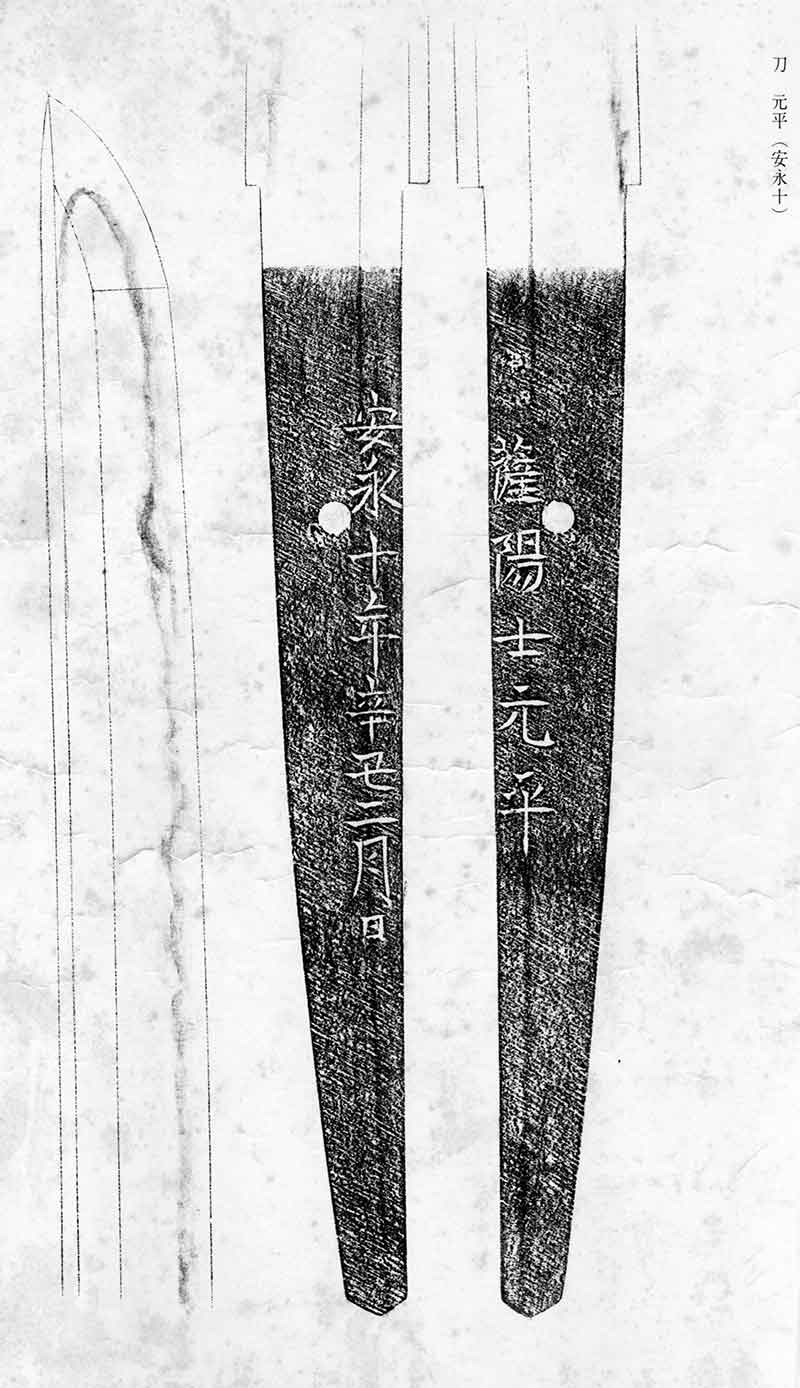 刀　元平（安永十）
薩陽士元平
安永十年辛丑二月日